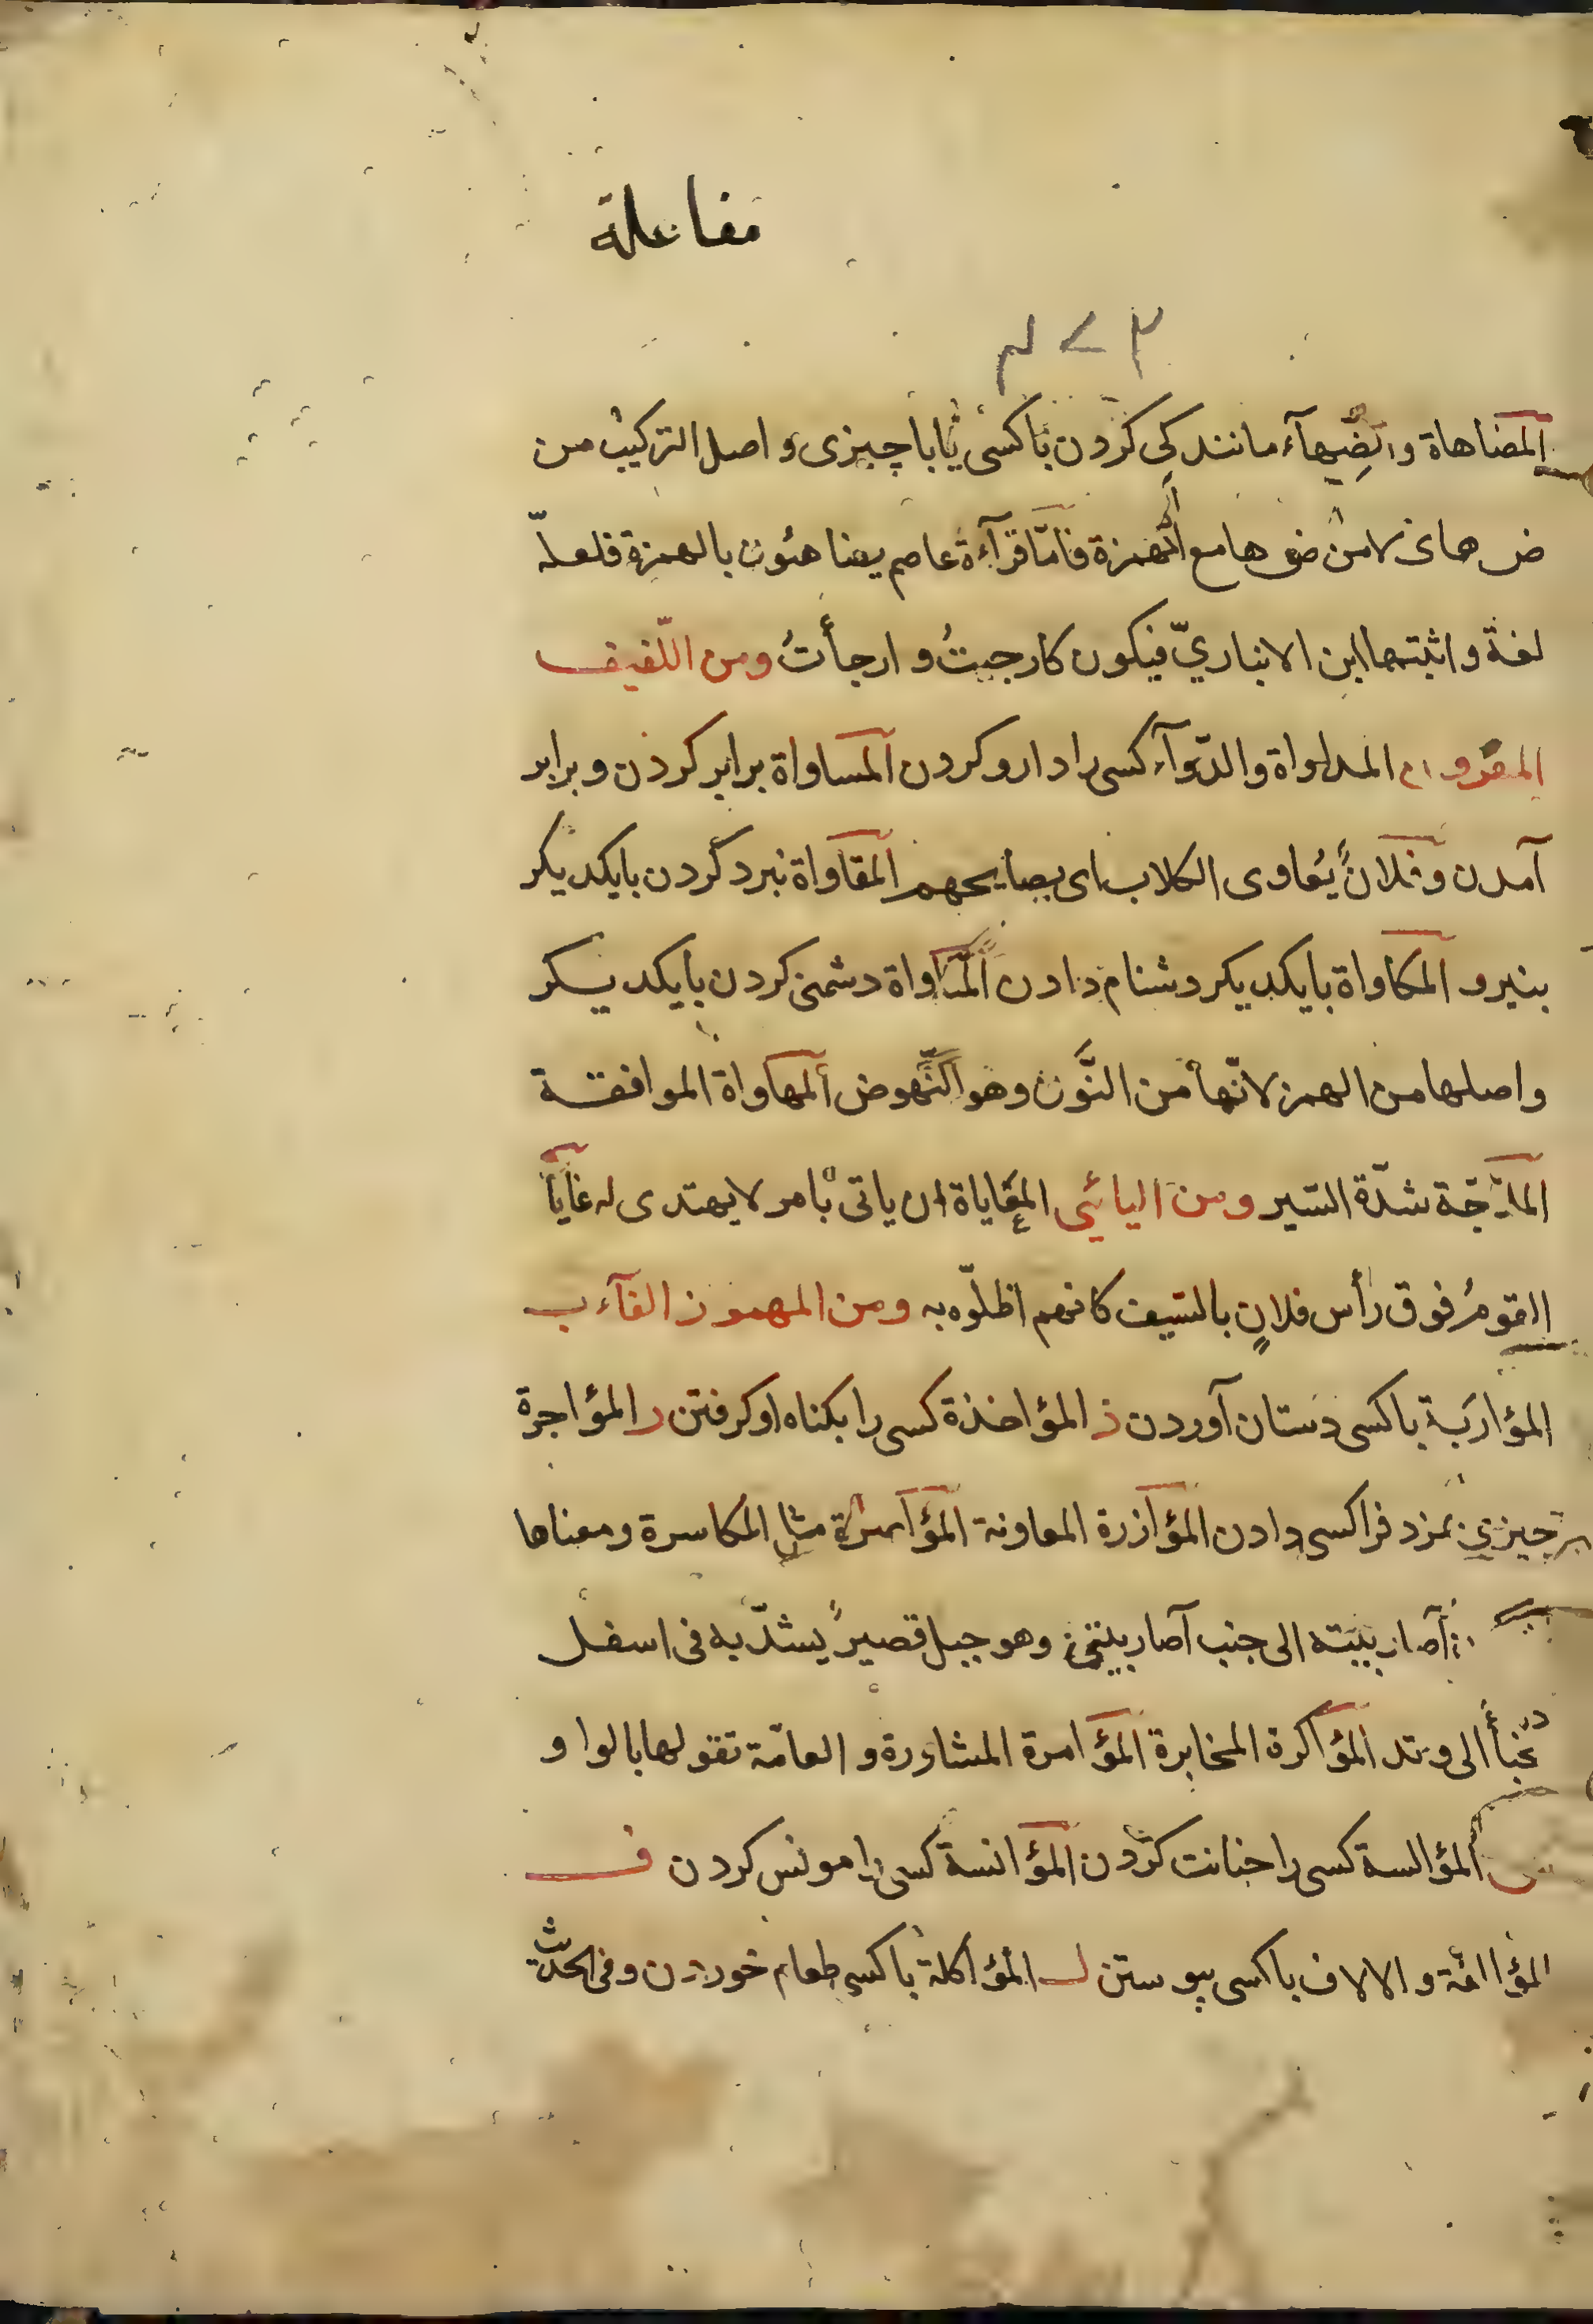 مفاعلة
المضاهاة والضِّهآء مانندکی کردن باکسی یا باچیزی و اصل الترکیب من
ض های لا من ض ها مع الهمزة فامّا قرآءة عاصم یضاهئون بالهمزة فلعلّ
لغة و اثبتها ابن الانباريّ فیکون کارجیتُ و ارجأتُ ومن اللّفیف
المقرون المداواة والدّوآء کسی را دارو کردن المساواة برابر کردن و برابر
آمدن و فلانٌ یُعاوی الکلاب ای یصایحهم المقاواة نبرد کردن بایکدیکر
بنیرو المکاواة بایکدیکر دشنام دادن المناواة دشمنی کردن بایکدیسکر
واصلها من الهمز لانّها من النَّوْن وهو النّهوض المهاواة الموافقة
الملاجّة شدّة السّیر ومن الیائیی المعایاة ان یاتی بامر لا یهتدی له غایا
القومُ فوق رأس فلانٍ بالسّیف کانهم اظلّوه به ومن المهموز الفآء ب
المؤاربَة باکسی دستان آوردن ذ المؤاخذة کسی را بکناه او کرفتن ر المؤاجرة
چیزی بمزد فرا کسی دادن المؤازرة المعاونة المؤآصرة مثل المکاسرة ومعناها
آصار بیته الی جنب آصار بیتی وهو حبل قصیرٌ یشدّ به فی اسفل
الی وتد المؤاکرة المخابرة المؤامرة المشاورة و العامّة تقولها بالواو
س المؤالسة کسی را خیانت کردن المؤانسة کسی را مونس کردن ف
المؤالفة و الالاف باکسی پیوستن ل المؤاکلة باکسی طعام خوردن و فی الحدیث